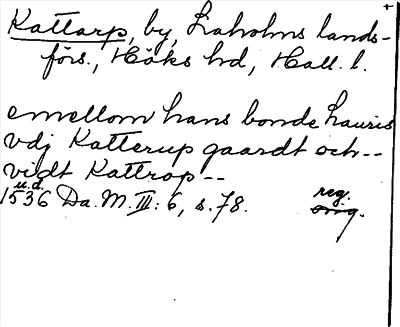 Kattarp, by, Laholms lands-
förs., Höks hd, Hall. l.
emellom hans bonde Lauris
vdj Katterup gaardt och--
vedt Kattrop--
u.d.
1536 Da. M. III: 6, s. 78. reg.
orig.